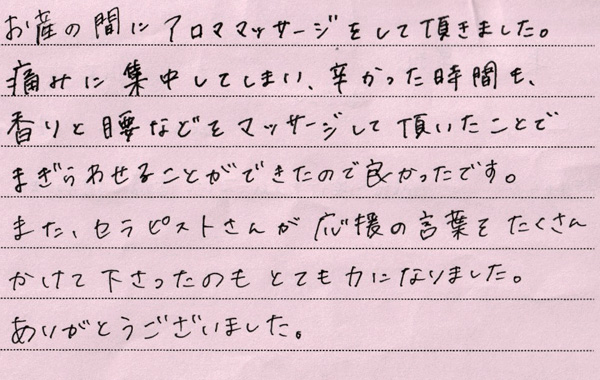 お産の間にアロママッサージをして頂きました。
痛みに集中してしまい、辛かった時間も、
香りと腰などをマッサージして頂いたことで
まぎらわせることができたので良かったです。
また、セラピストさんが応援の言葉をたくさん
かけて下さったのもとても力になりました。
ありがとうございました。